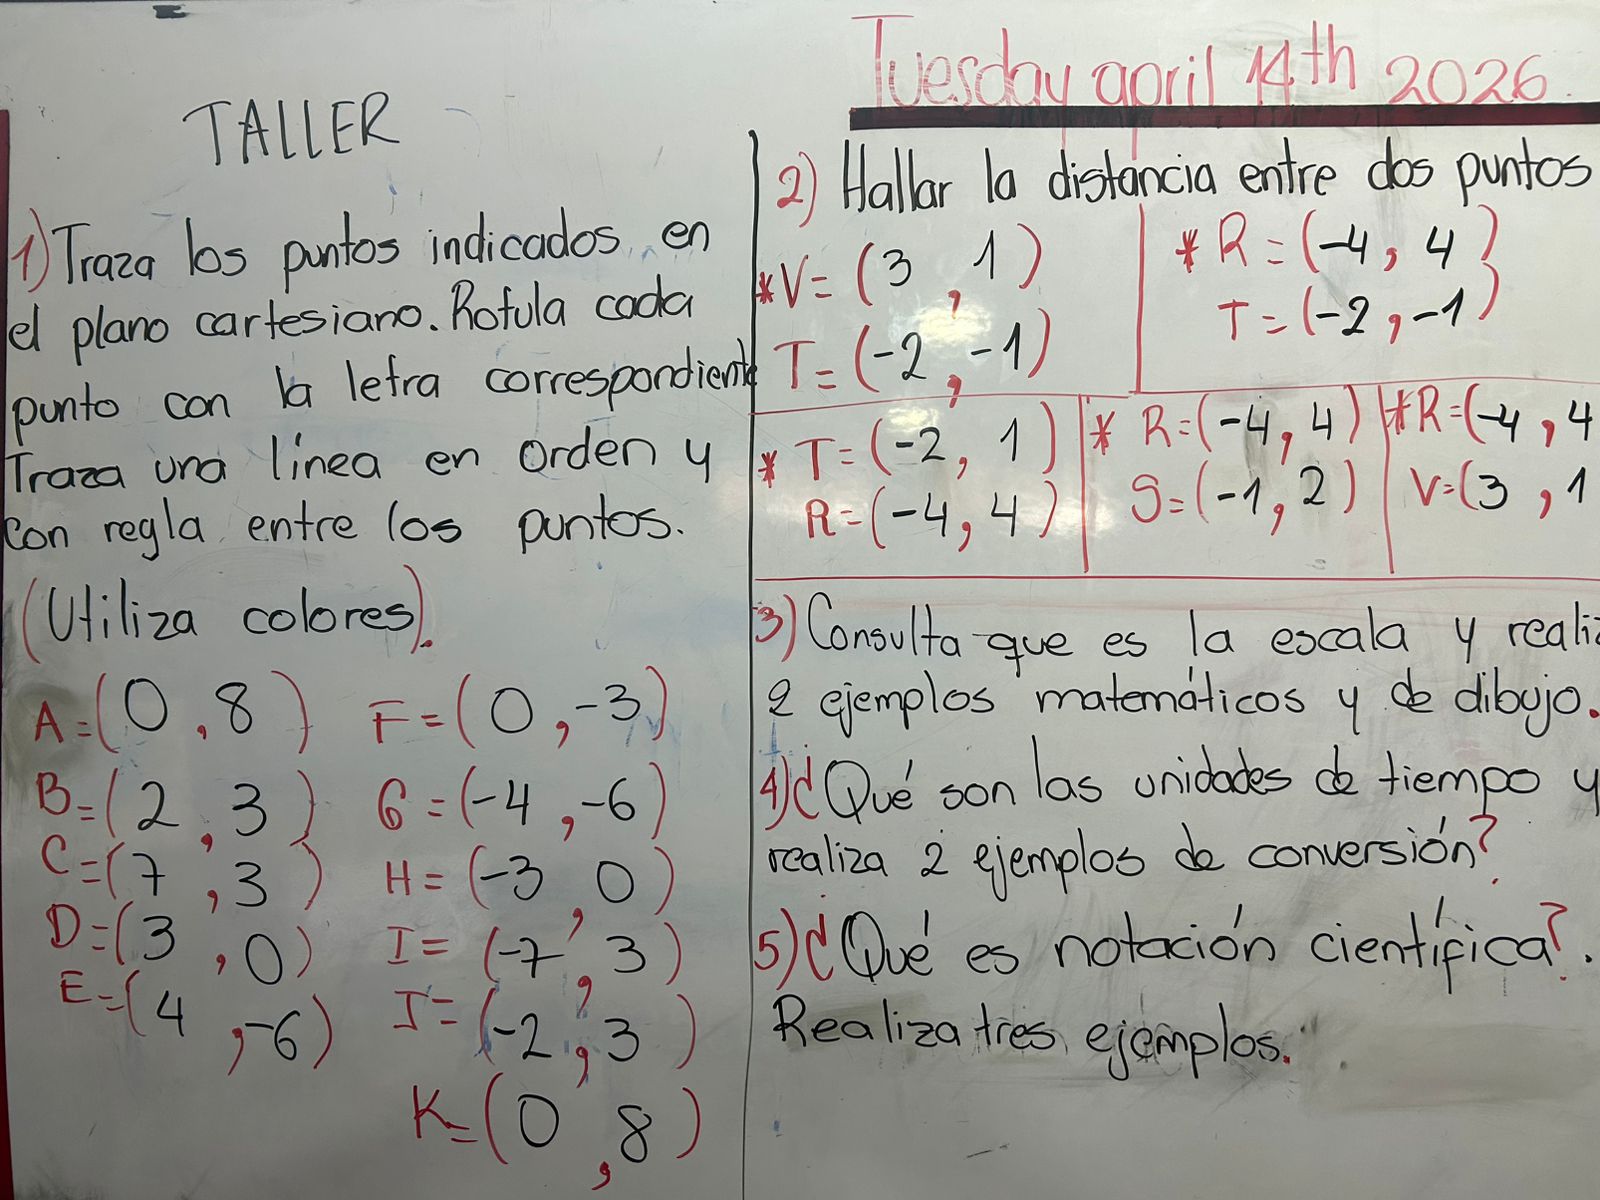 Tuesday april 14th 2026.
TALLER
1) Traza los puntos indicados en
el plano cartesiano. Rotula cada
punto con la letra correspondiente
Traza una línea en orden y
con regla entre los puntos.
(Utiliza colores).
A=(0,8)
B=(2,3)
C=(7,3)
D=(3,0)
E=(4,-6)
F=(0,-3)
G=(-4,-6)
H=(-3,0)
I=(-7,3)
J=(-2,3)
K=(0,8)
2) Hallar la distancia entre dos puntos
*V=(3,1)
T=(-2,-1)
*R=(-4,4)
T=(-2,-1)
*T=(-2,1)
R=(-4,4)
*R=(-4,4)
S=(-1,2)
*R=(-4,4
V=(3,1
3) Consulta que es la escala y realiz
2 ejemplos matemáticos y de dibujo.
4) ¿Qué son las unidades de tiempo y
realiza 2 ejemplos de conversión?
5) ¿Qué es notación científica?.
Realiza tres ejemplos.